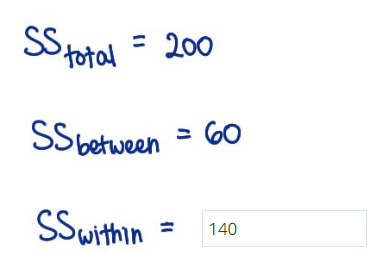 SS total = 200
SS between = 60
SS within = 140